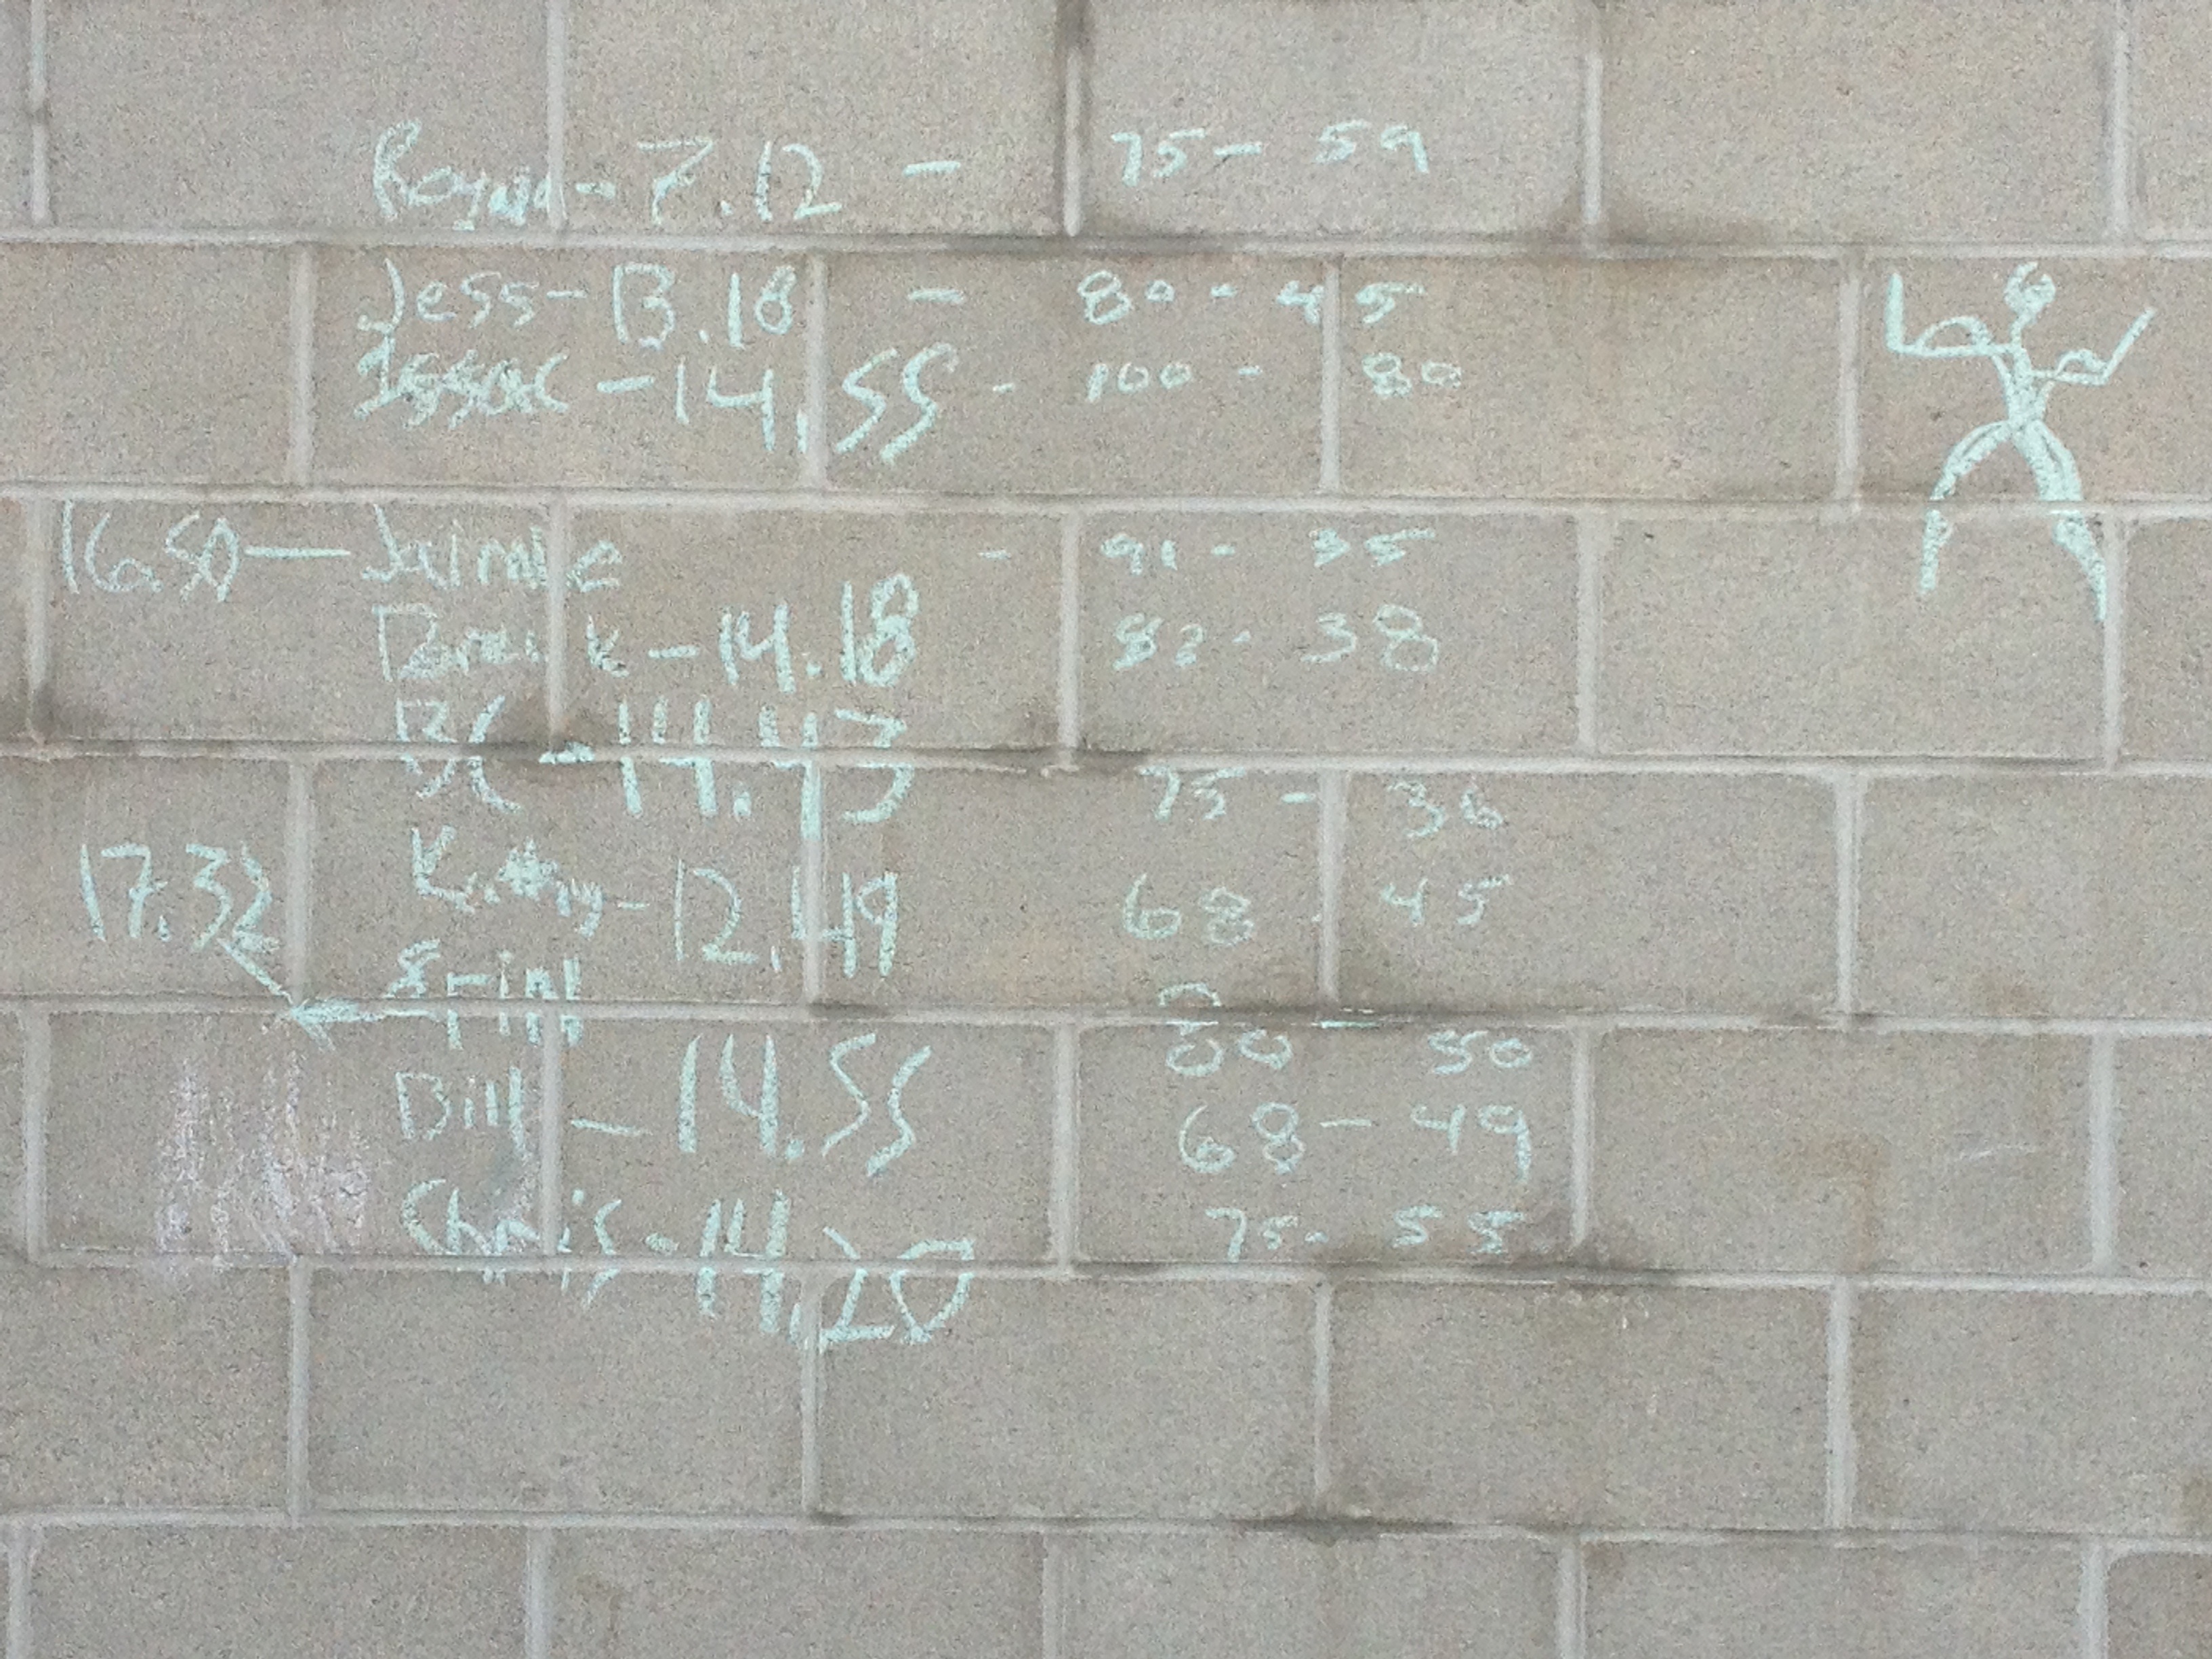 7.12 - 75 - 59
Jess - 13.18 - 80 - 45
Issac - 14.55 - 100 - 80
16.50 — Jaimie - 91 - 35
14.18 82 - 38
BC - 14.43 75 - 36
17.32 Kathy - 12.49 68 - 45
80 50
Bill - 14.55 68 - 49
Chris - 14.20 75 - 55